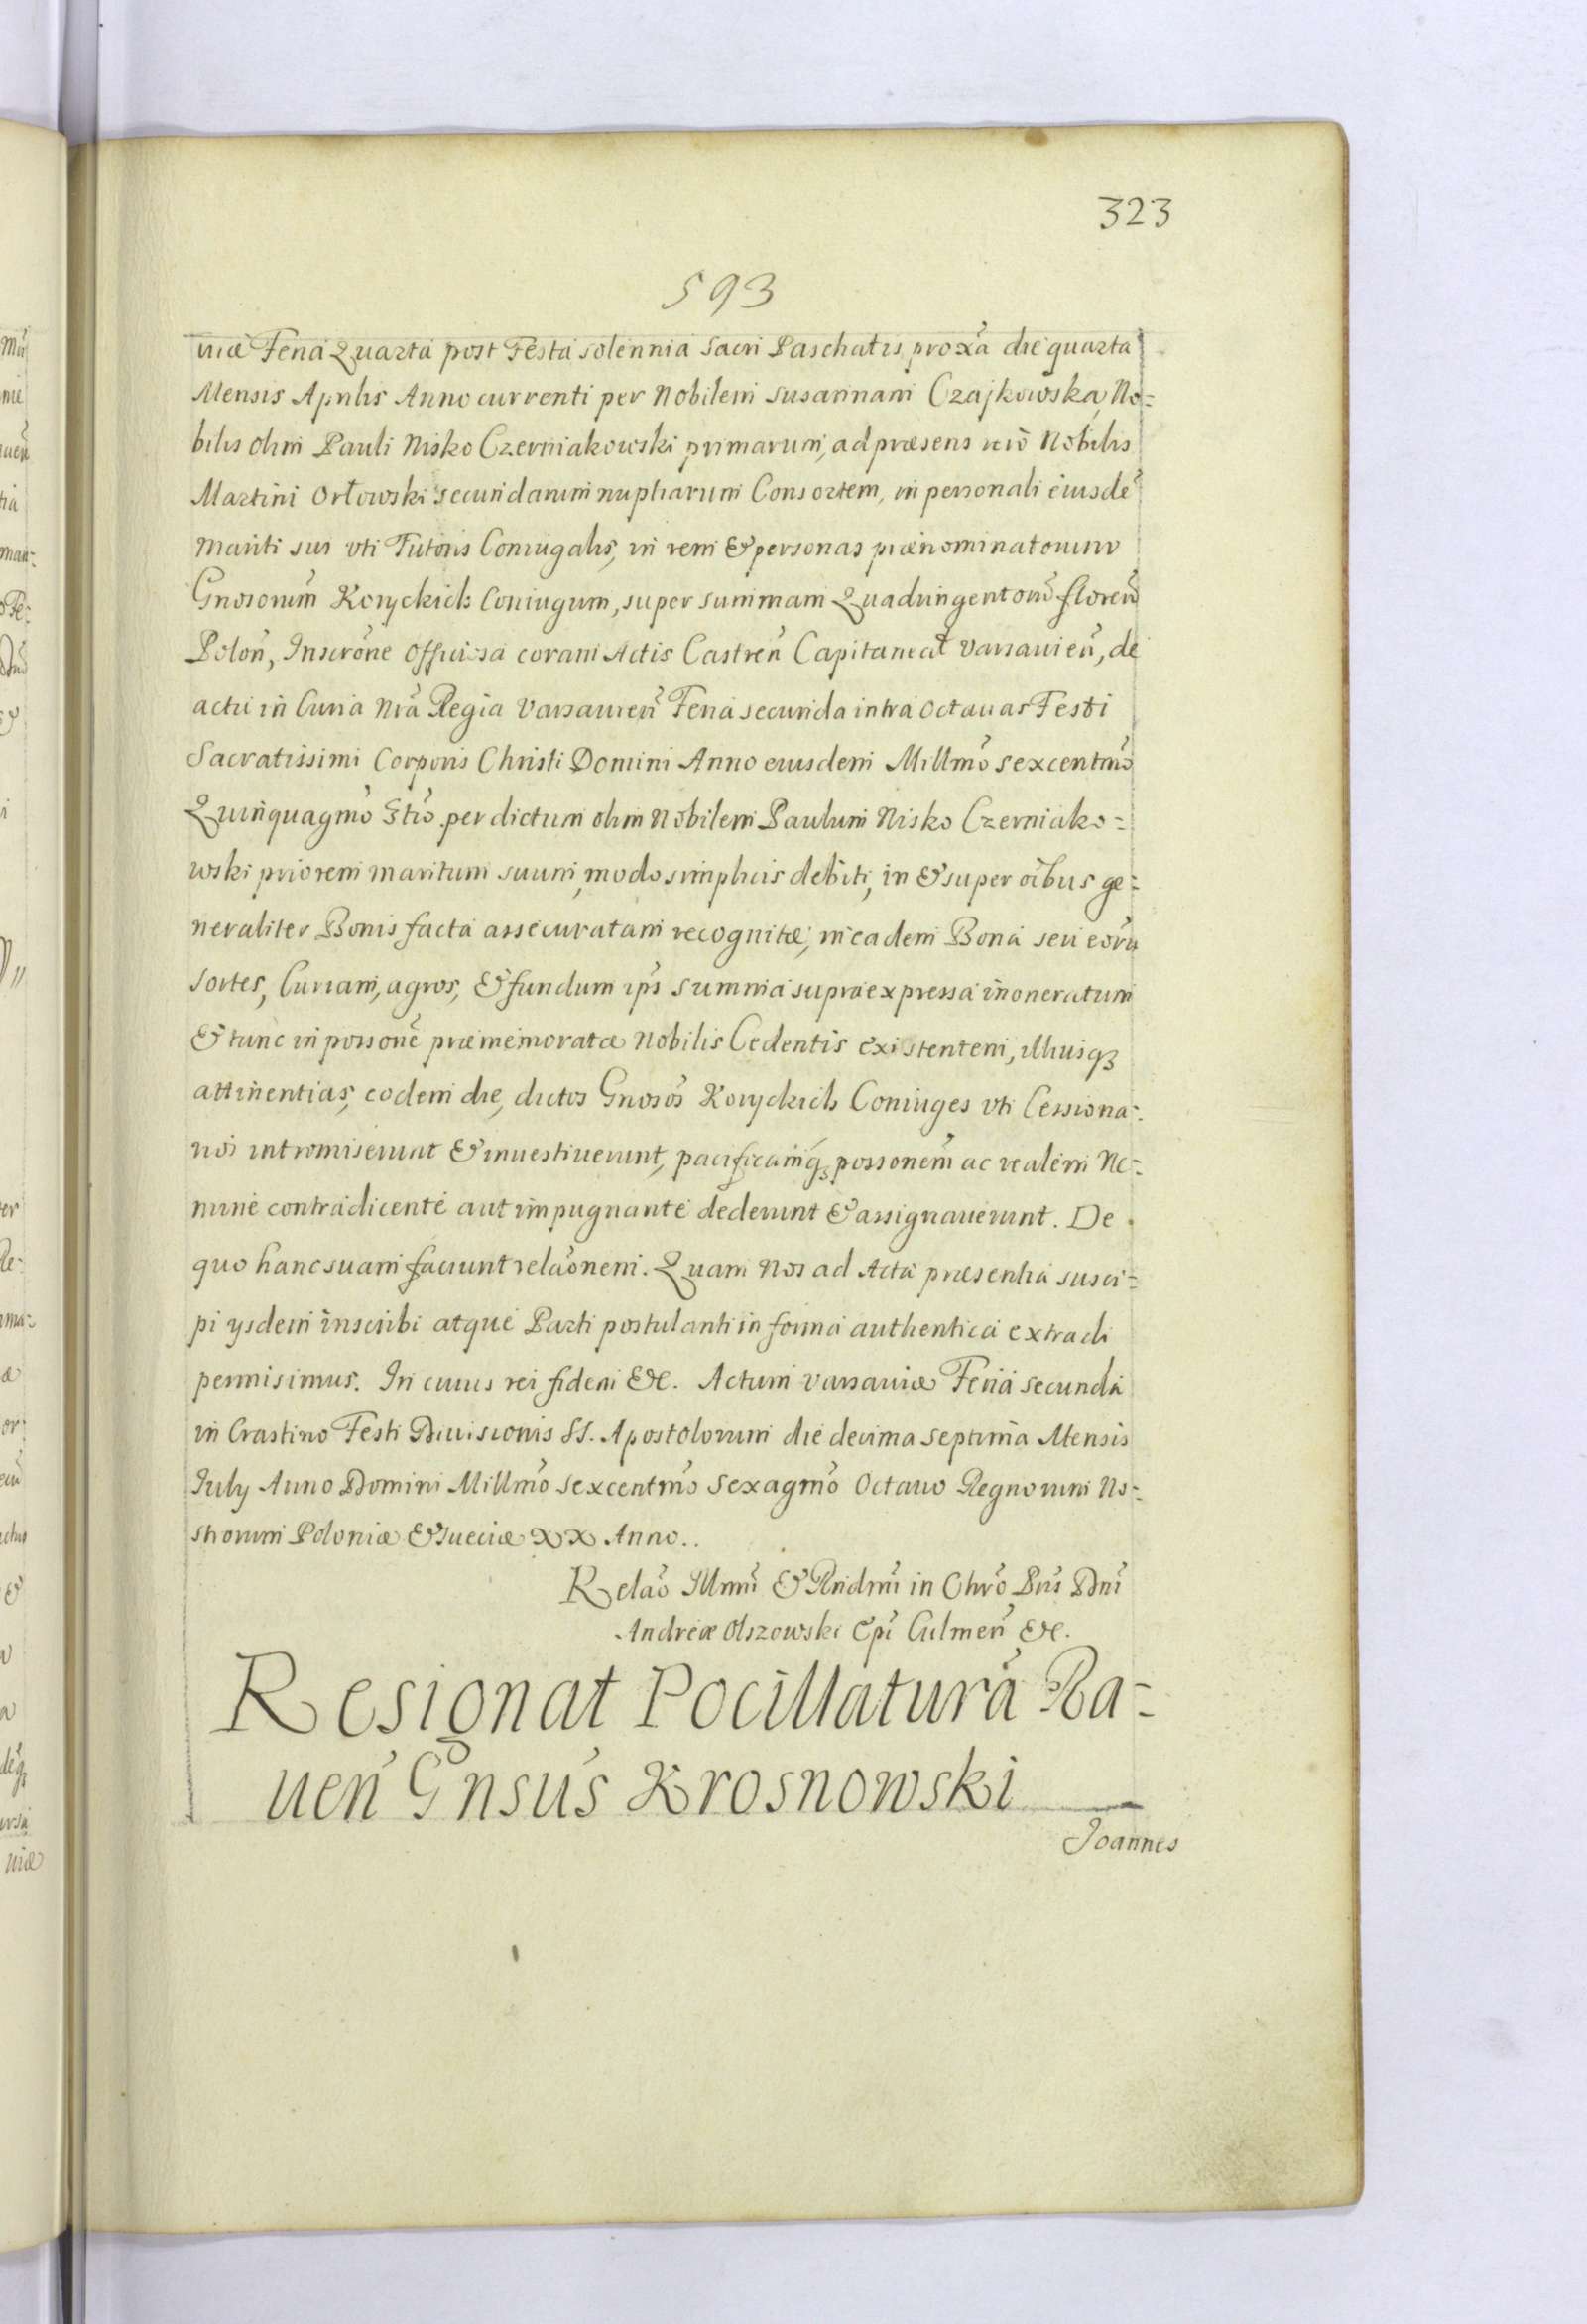 323
593
uiæ Feria Quarta post Festa solennia Sacri Paschatis, proxa᷉ die quarta
Mensis Aprilis Anno currenti per Nobilem Susannam Czajkowska, No=
bilis olim Pauli Nisko Czerniakowski primarum, ad præsens vero Nobilis
Martini Orłowski secundarum nuptiarum Consortem, in personali eiusde᷉
mariti sui vti Tutoris Coniugalis, in rem & personas prænominatorum
Gnosorum᷉ Koryckich Coniugum, super summam Quadringentoru᷉ floren᷉
Polon᷉, Inscro᷉ne officiosa coram Actis Castren᷉ Capitaneat᷉ Varsauien᷉, de
actu in Curia Nra᷉ Regia Varsauien᷉ Feria secunda intra octauas Festi
Sacratissimi Corporis Christi Domini Anno eiusdem Millmo᷉ sexcentmo᷉
Quinquagmo᷉ 8tio᷉ per dictum olim Nobilem Paulum Nisko Czerniako=
wski priorem maritum suum, modo simplicis debiti, in & super oi᷉bus ge=
neraliter Bonis facta assecuratam recognitæ, in eadem Bona seu eoru᷉
sortes, Curiam, agros, & fundum ips᷉ summa supra expressa inoneratum
& tunc in possone᷉ præmemoratæ Nobilis Cedentis existentem, illiusqȝ
attinentias, eodem die, dictos Gnosos᷉ Koryckich Coniuges vti Cessiona=
rios intromiserunt & inuestiuerunt, pacificamqȝ possonem᷉ ac realem Ne=
mine contradicente aut impugnante dederunt & assignauerunt. De
quo hanc suam faciunt relao᷉nem. Quam Nos ad Acta præsentia susci=
pi ysdem inscribi atque Parti postulanti in forma authentica extradi
permisimus. In cuius rei fidem &c. Actum Varsauiæ Feria secunda
in Crastino Festi Diuisionis SS. Apostolorum die decima septima Mensis
July Anno Domini Millmo᷉ sexcentmo᷉ sexagmo᷉ Octauo Regnorum No=
strorum Poloniæ & Sueciæ XX Anno..
Relao᷉ Illmi᷉ & Rndmi᷉ in Chro᷉ Pris᷉ Dni᷉
Andreæ Olszowski Epi᷉ Culmen᷉ &c.
Resignat Pocillatura᷉ Ra=
uen᷉ Gnsus᷉ Krosnowski
Joannes